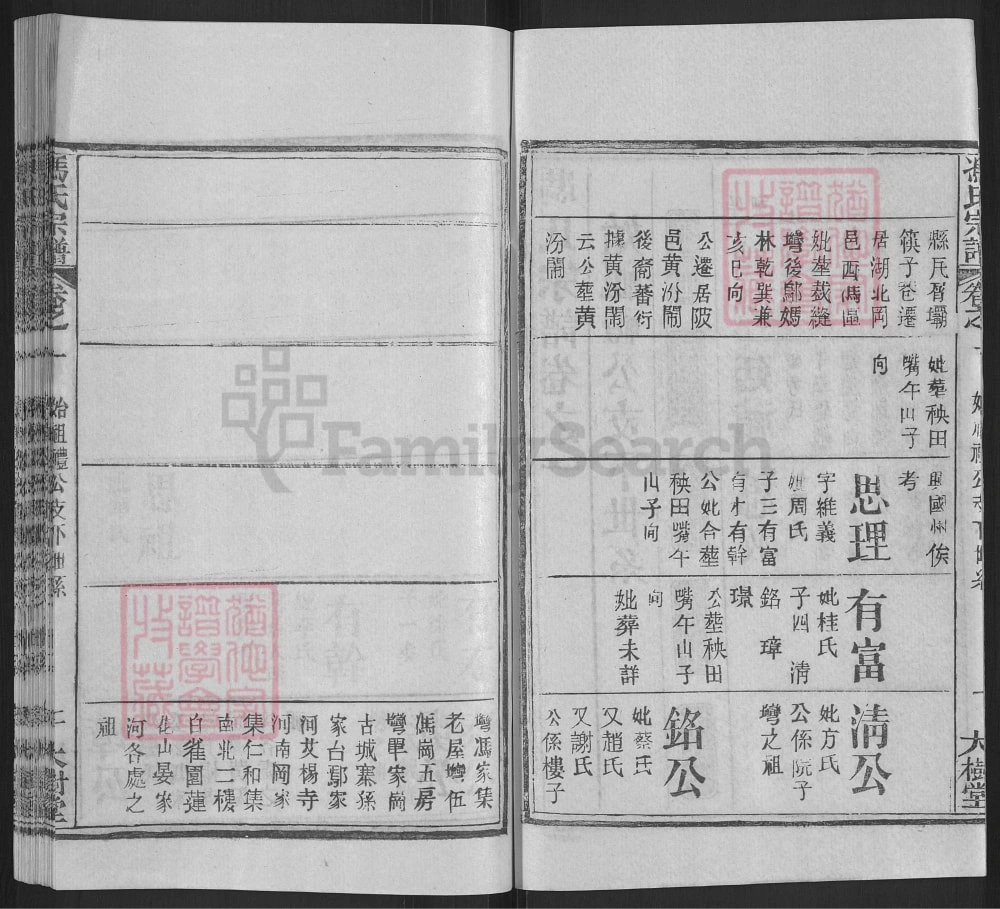 馮氏宗譜
大樹堂
縣瓦屑壩
筷子巷遷
居湖北岡
邑西馮區
妣塟裁縫
塆後鄔媽
林乾巽兼
亥巳向
公遷居陂
邑黃汾閙
後裔蕃衍
據黃汾閙
云公塟黃
汾閙
妣塟秧田
嘴午山子
向
興國州俟
考
思理
字維義
妣周氏
子三有富
有才有幹
公妣合塟
秧田嘴午
山子向
有富
妣桂氏
子四 清
銘 璋
璟
公塟秧田
嘴午山子
向
妣葬未詳
清公
妣方氏
公係院子
塆之祖
銘公
妣蔡氏
又趙氏
又謝氏
公係樓子
塆馮家集
老屋塆伍
馮崗五房
塆單家崗
古城寨孫
家台鄢家
河艾楊寺
河南岡家
集仁和集
南北二樓
白雀園蓮
花山晏家
河各處之
祖
馮氏宗譜
卷之一
始祖禮公支下世系
二
大樹堂
FamilySearch